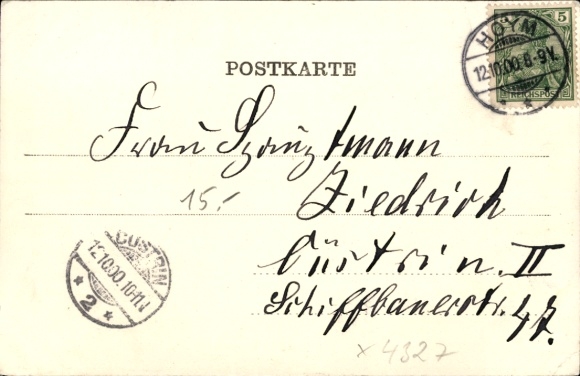 5
REICHSPOST
HOYM
12.10.00.8-9V.
POSTKARTE
Frau Hauptmann
Ziedrich
Cüstrin. II
Schiffbauerstr. 47.
15.-
CÜSTRIN
12.10.00.10-11.V
* 2 *
x 4327